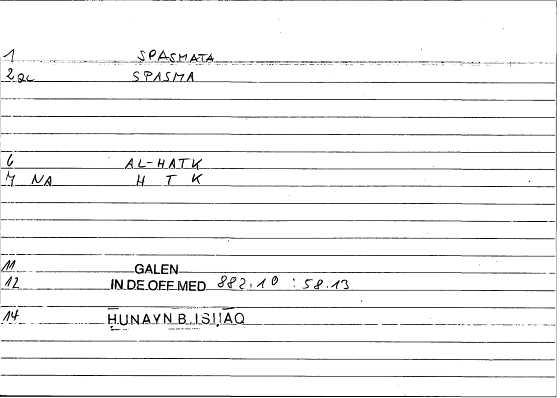 1 SPASMATA
2 QC SPASMA
6 AL-HATK
7 NA H T K
11 GALEN
12 IN DE OFF MED 882.10 : 58.13
14 HUNAYN B. ISHAQ